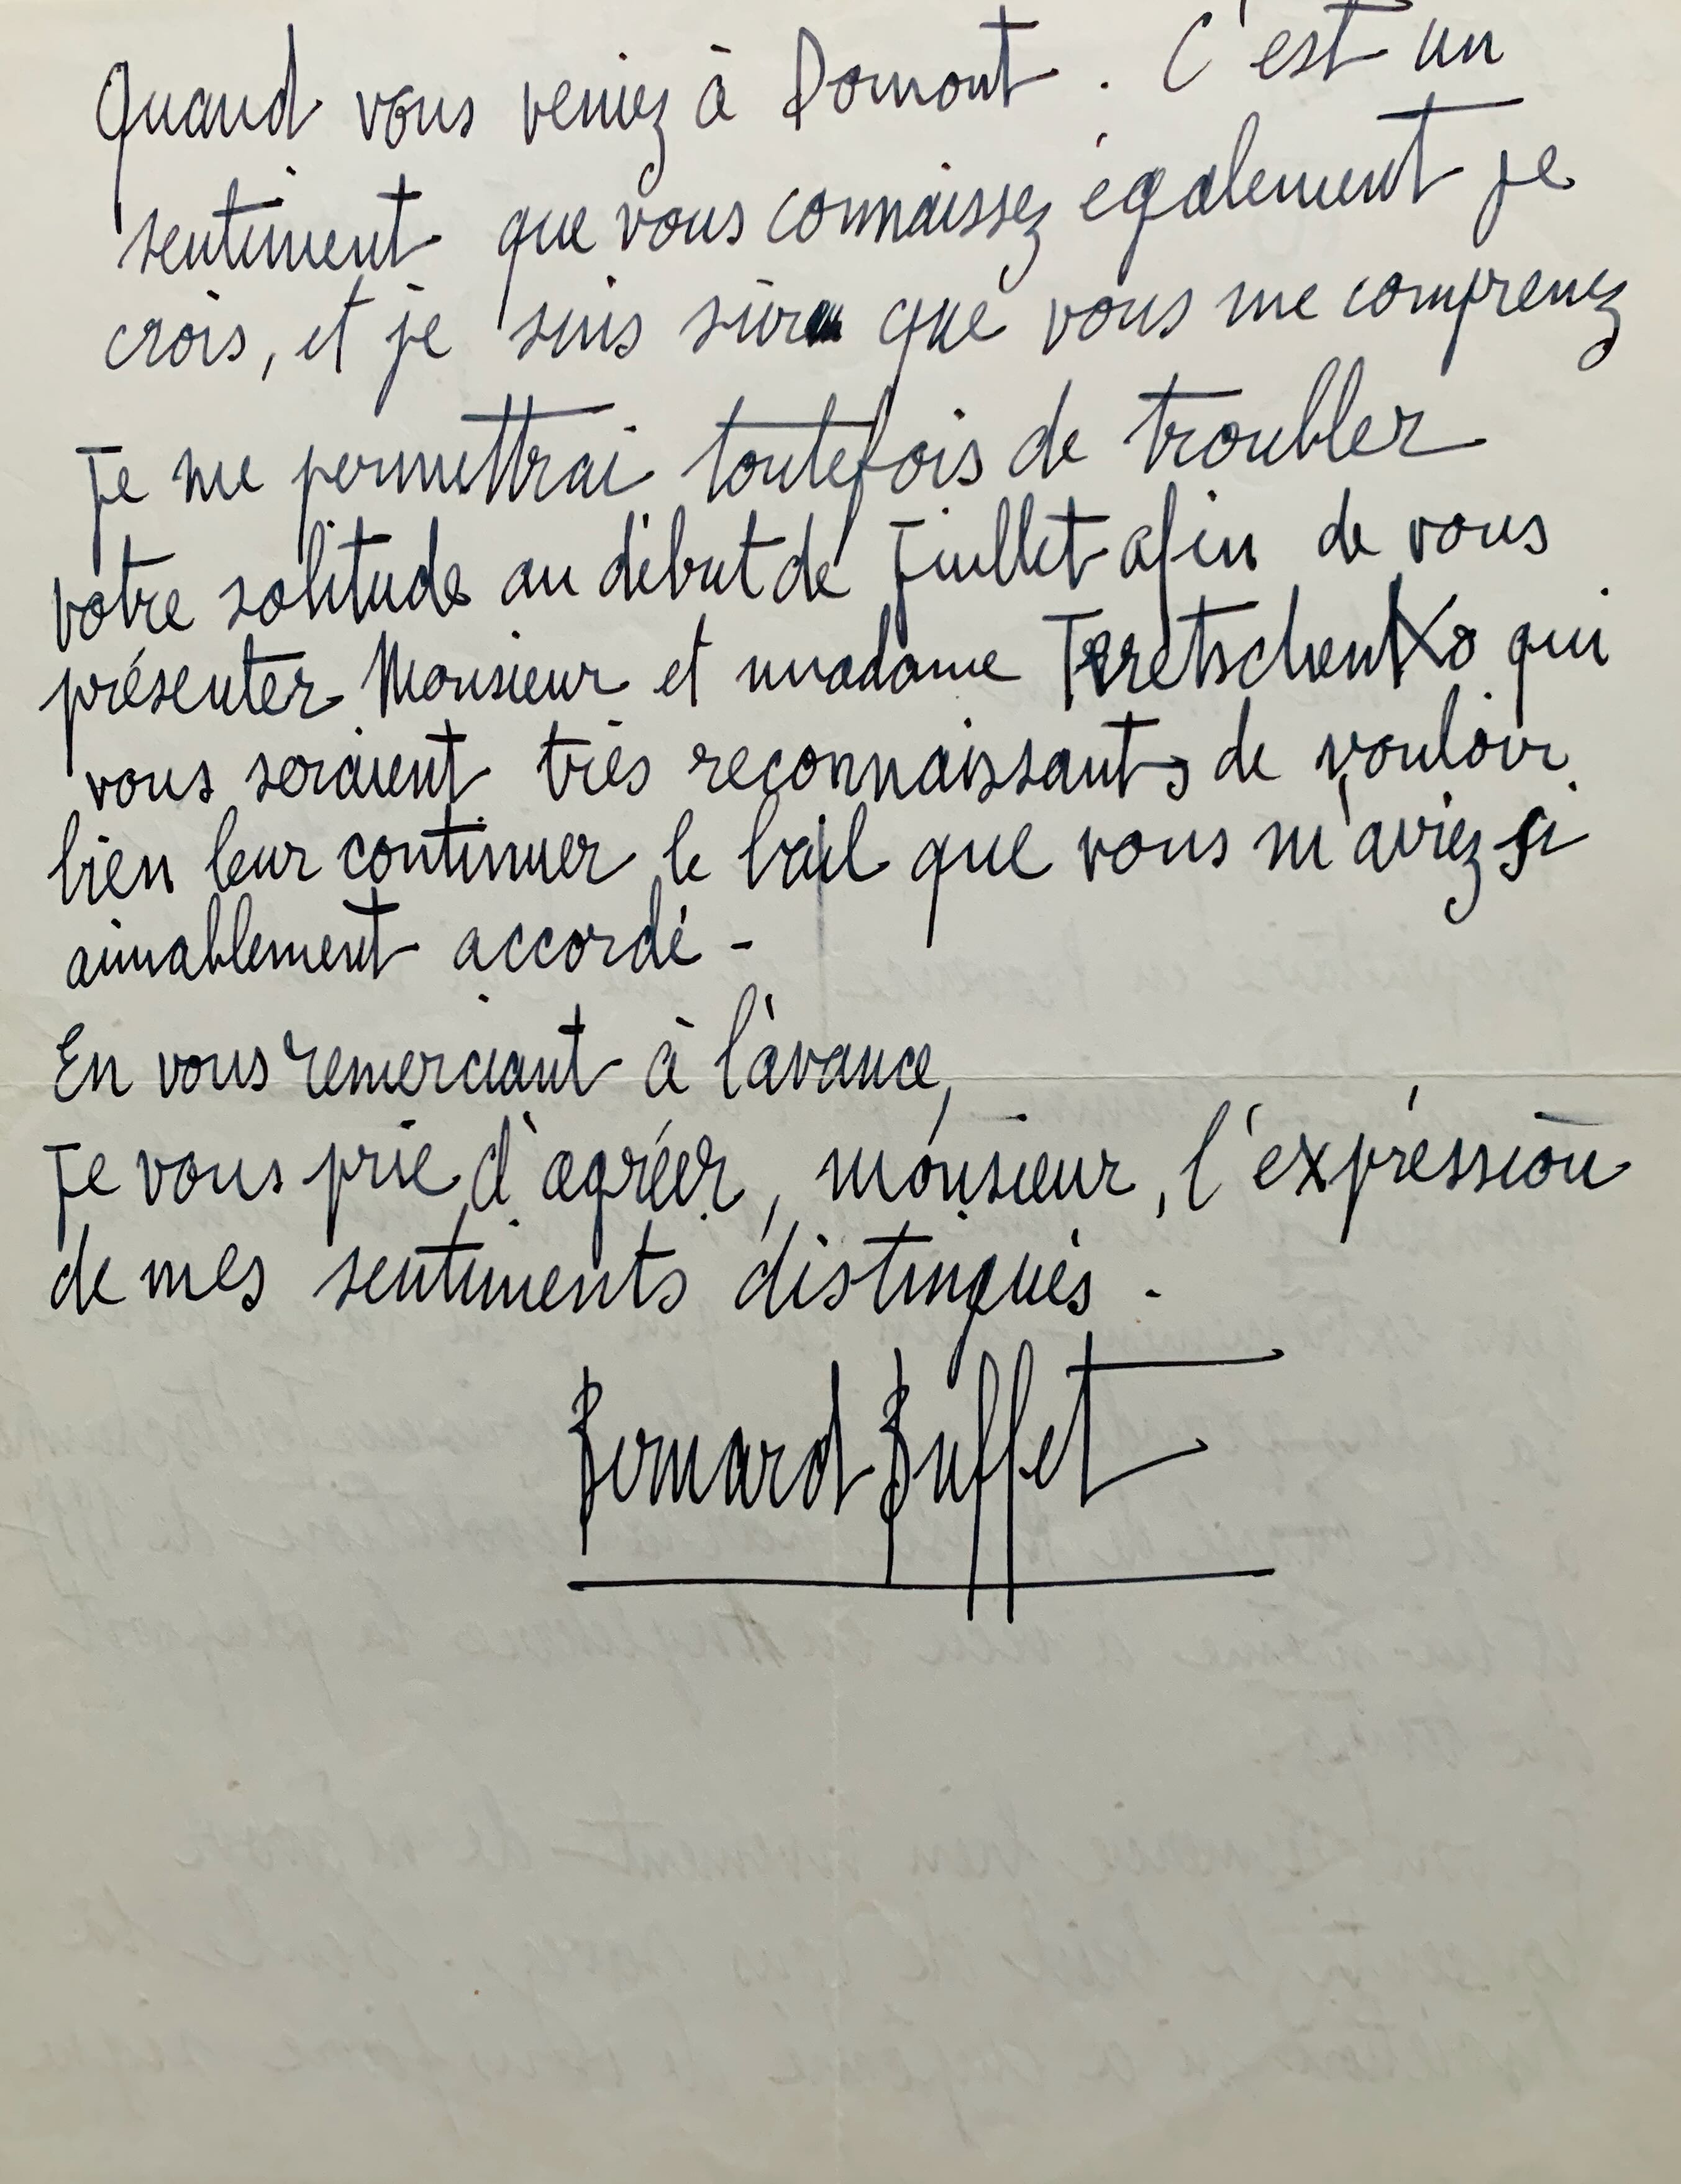 Quand vous veniez à Domont. C'est un
sentiment que vous connaissez également je
crois, et je suis sûr que vous me comprenez
Je me permettrai toutefois de troubler
votre solitude au début de Juillet afin de vous
présenter Monsieur et madame Terretschenko qui
vous seraient très reconnaissants de vouloir
bien leur continuer le bail que vous m'aviez si
aimablement accordé -
En vous remerciant à l'avance,
Je vous prie d'agréer, monsieur, l'expréssion
de mes sentiments distingués.
Bernard Buffet